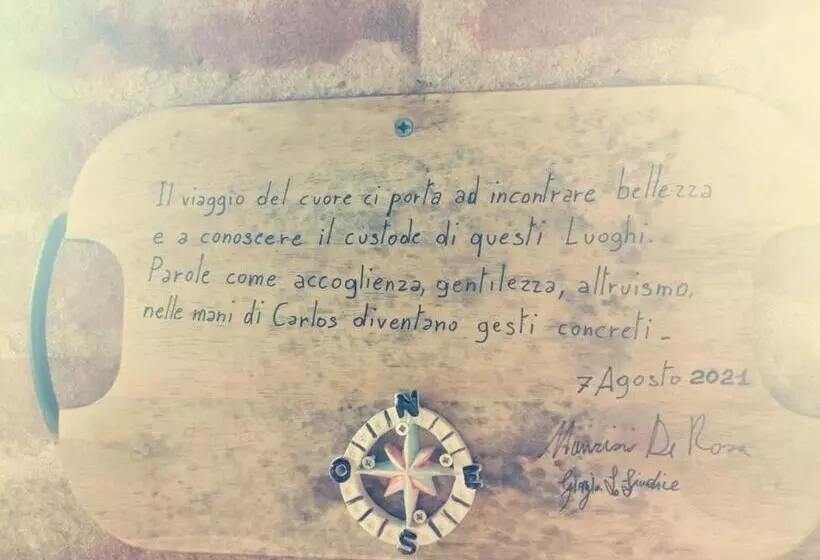 Il viaggio del cuore ci porta ad incontrare bellezza
e a conoscere il custode di questi Luoghi.
Parole come accoglienza, gentilezza, altruismo,
nelle mani di Carlos diventano gesti concreti -
7 Agosto 2021
De Rosa
N
O E
S